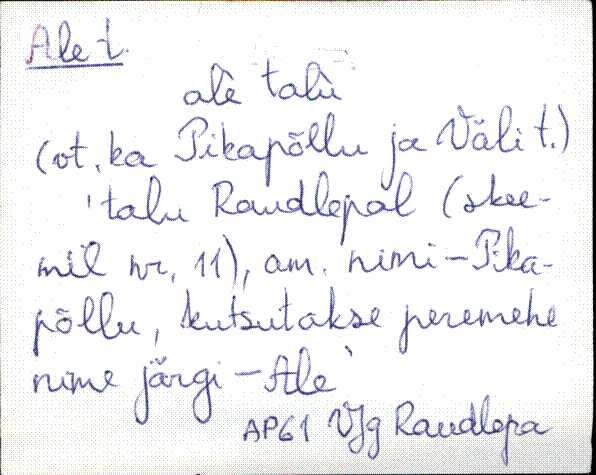 Ale t.
alè talù
(vt. ka Pikapõllu ja Väli t.)
'talu Raudlepal (skee-
mil nr. 11), am. nimi - Pika-
põllu, kutsutakse peremehe
nime järgi - Ale'
AP61 VJg Raudlepa